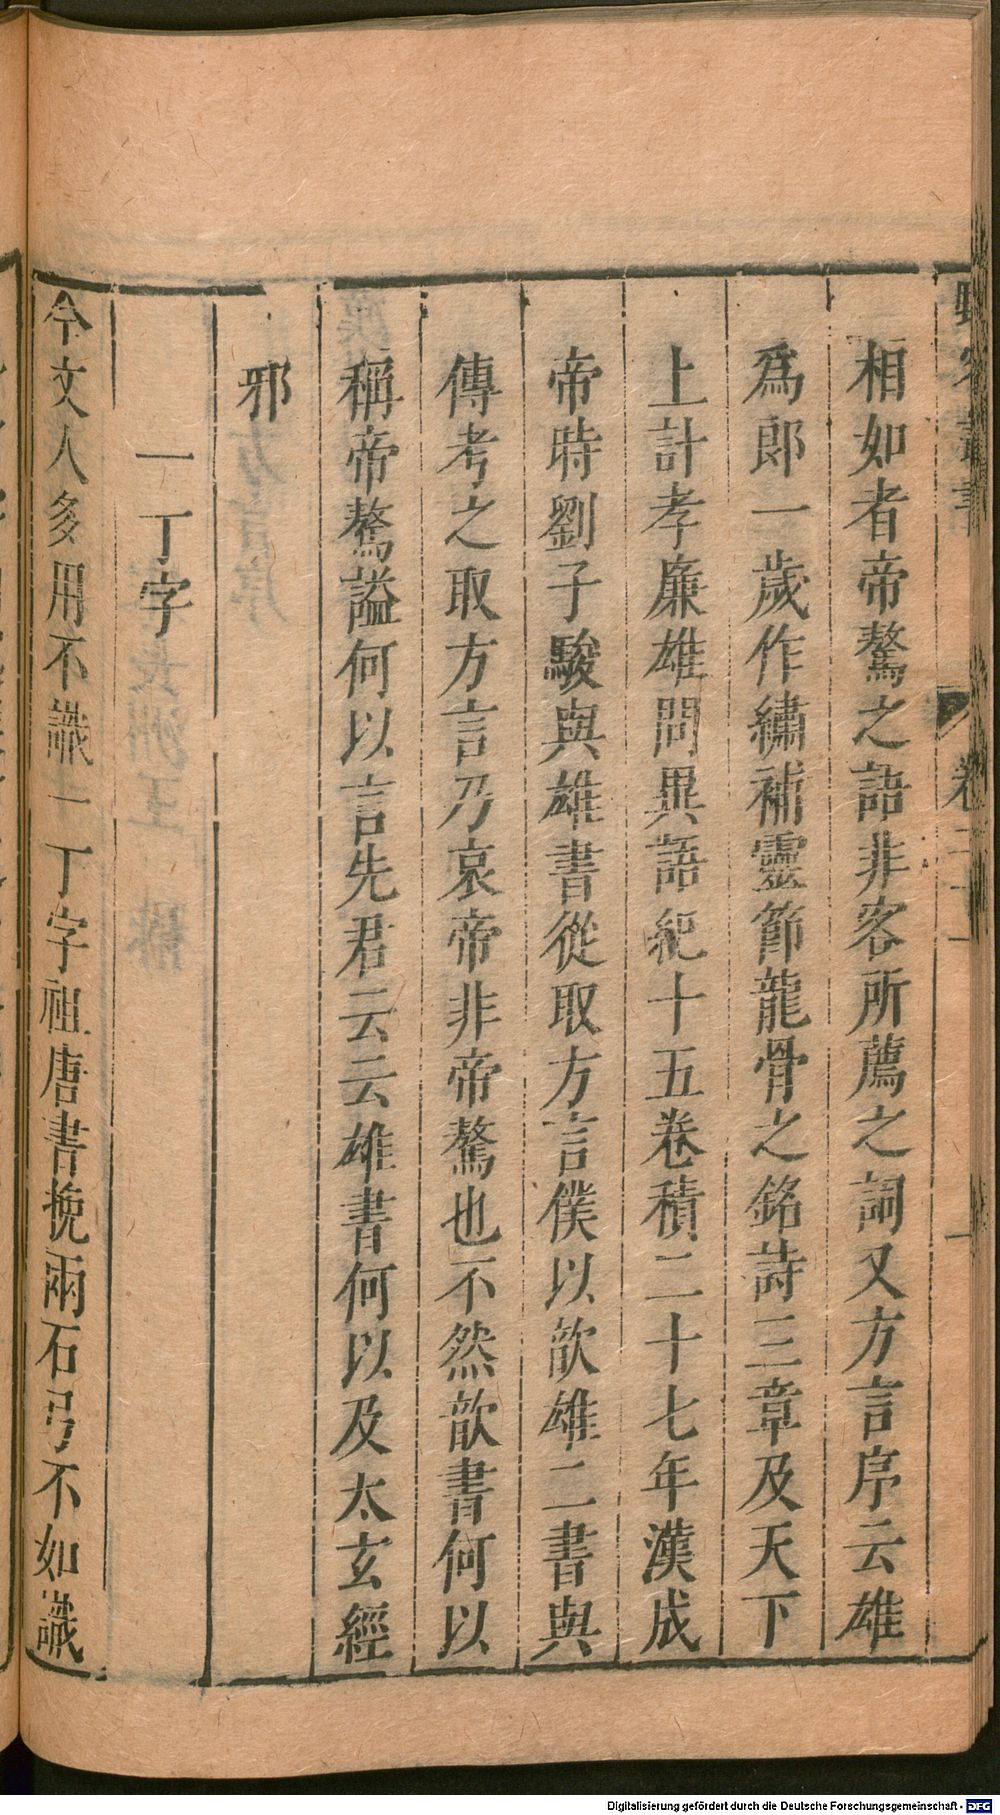 相如者帝驁之語非客所薦之詞又方言序云雄
爲郎一歲作繡補靈節龍骨之銘詩三章及天下
上計孝廉雄問異語紀十五卷積二十七年漢成
帝時劉子駿與雄書從取方言僕以歆雄二書與
傳考之取方言乃哀帝非帝驁也不然歆書何以
稱帝驁謚何以言先君云云雄書何以及太玄經
邪
一丁字
今文人多用不識一丁字祖唐書挽兩石弓不如識
Digitalisierung gefördert durch die Deutsche Forschungsgemeinschaft - DFG